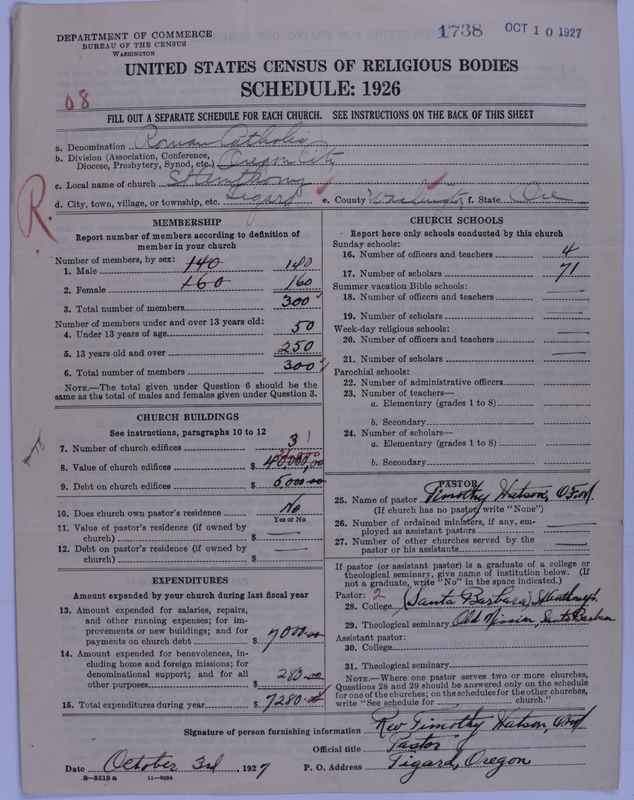 1738 OCT 10 1927
DEPARTMENT OF COMMERCE
BUREAU OF THE CENSUS
WASHINGTON
UNITED STATES CENSUS OF RELIGIOUS BODIES
SCHEDULE: 1926
08
FILL OUT A SEPARATE SCHEDULE FOR EACH CHURCH. SEE INSTRUCTIONS ON THE BACK OF THIS SHEET
a. Denomination Roman Catholic
b. Division (Association, Conference,
Diocese, Presbytery, Synod, etc.) Oregon City
c. Local name of church St Anthony
d. City, town, village, or township, etc. Tigard e. County Washington f. State Ore
R.
MEMBERSHIP
Report number of members according to definition of
member in your church
Number of members, by sex:
1. Male 140 140
2. Female 160 160
3. Total number of members 300
Number of members under and over 13 years old:
4. Under 13 years of age 50
5. 13 years old and over 250
6. Total number of members 300
NOTE.—The total given under Question 6 should be
the same as the total of males and females given under Question 3.
CHURCH BUILDINGS
See instructions, paragraphs 10 to 12
7. Number of church edifices 3 1
8. Value of church edifices $ 40,000,00
9. Debt on church edifices $ 6000.00
10. Does church own pastor's residence? No
Yes or No
11. Value of pastor's residence (if owned by
church) $
12. Debt on pastor's residence (if owned by
church) $
EXPENDITURES
Amount expended by your church during last fiscal year
13. Amount expended for salaries, repairs,
and other running expenses; for im-
provements or new buildings; and for
payments on church debt $ 7000.00
14. Amount expended for benevolences, in-
cluding home and foreign missions; for
denominational support; and for all
other purposes $ 280.00
15. Total expenditures during year $ 7280.00
CHURCH SCHOOLS
Report here only schools conducted by this church
Sunday schools:
16. Number of officers and teachers 4
17. Number of scholars 71
Summer vacation Bible schools:
18. Number of officers and teachers
19. Number of scholars
Week-day religious schools:
20. Number of officers and teachers
21. Number of scholars
Parochial schools:
22. Number of administrative officers
23. Number of teachers—
a. Elementary (grades 1 to 8)
b. Secondary
24. Number of scholars—
a. Elementary (grades 1 to 8)
b. Secondary
PASTOR
25. Name of pastor Timothy Watson, O.F.M.
(If church has no pastor, write "None")
26. Number of ordained ministers, if any, em-
ployed as assistant pastors
27. Number of other churches served by the
pastor or his assistants
If pastor (or assistant pastor) is a graduate of a college or
theological seminary, give name of institution below. (If
not a graduate, write "No" in the space indicated.)
Pastor: 2
28. College (Santa Barbara) St Anthonys
29. Theological seminary Old Mission Santa Barbara
Assistant pastor:
30. College
31. Theological seminary
NOTE.—Where one pastor serves two or more churches,
Questions 28 and 29 should be answered only on the schedule
for one of the churches; on the schedules for the other churches,
write "See schedule for church."
Signature of person furnishing information Rev Timothy Watson, O.F.M.
Official title Pastor
Date October 3rd, 1927 P. O. Address Tigard, Oregon
8—5319 a 11—9054